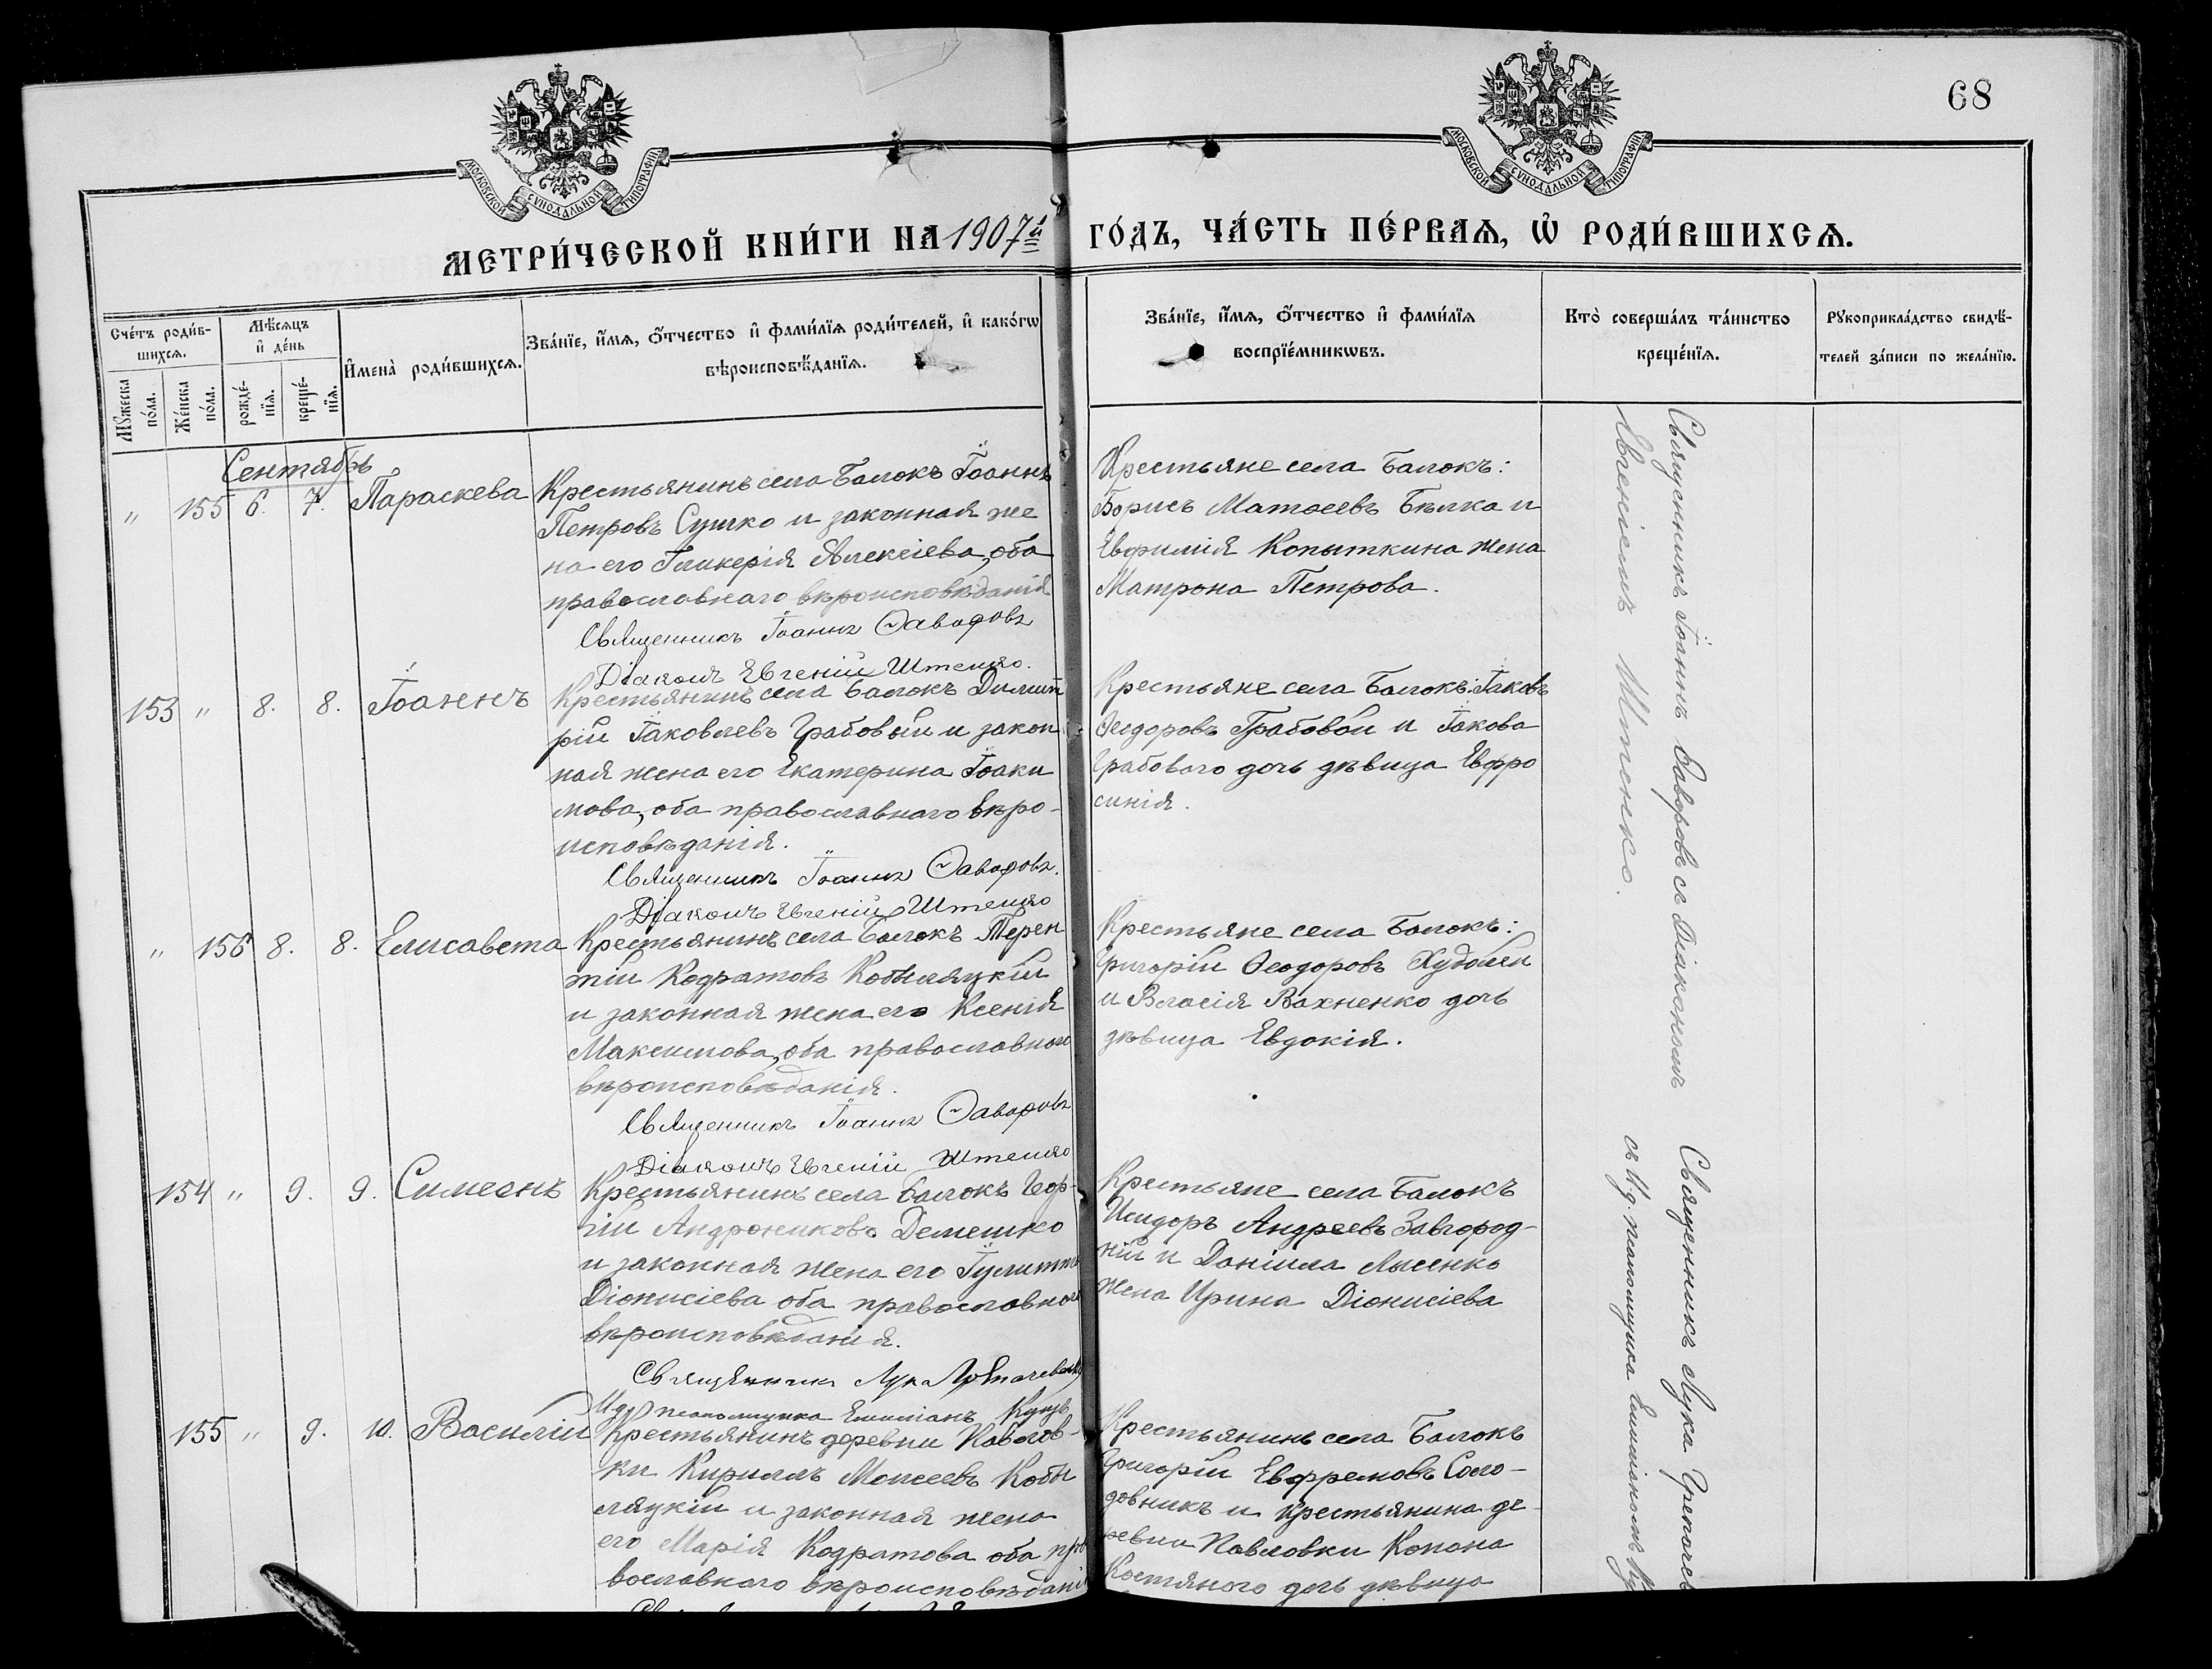 68
МОСКОВСКОЙ СѴНОДАЛЬНОЙ ТИПОГРАФІИ
МОСКОВСКОЙ СѴНОДАЛЬНОЙ ТИПОГРАФІИ
МЕТРИ́ЧЕСКОЙ КНИ́ГИ НА 1907й ГО́ДЪ, ЧА́СТЬ ПЕ́РВАѦ, Ѡ҆ РОДИ́ВШИХСѦ.
Сче́тъ роди́в-
шихсѧ.
Мꙋжеска
по́ла.
Же́нска
по́ла.
Мѣ́сѧцъ
и҆ де́нь
рожде́-
нїѧ.
креще́-
нїѧ.
И҆мена̀ роди́вшихсѧ.
Зва́нїе, и҆́мѧ, ѻ҆́тчество и҆ фами́лїѧ роди́телей, и҆ како́гѡ
вѣроисповѣ́данїѧ.
Зва́нїе, и҆́мѧ, ѻ҆́тчество и҆ фами́лїѧ
воспрїе́мникѡвъ.
Кто̀ соверша́лъ та́инство
креще́нїѧ.
Рꙋкоприкла́дство свидѣ́-
телей за́писи по жела́нїю.
Сентябрь
" 155 6. 7. Параскева
Крестьянинъ села Балокъ Іоаннъ
Петровъ Сушко и законная же
на его Гликерія Алексіева, оба
православнаго вѣроисповѣданія
Священникъ Іоаннъ Ѳаворовъ
Діаконъ Евгеній Штенко.
Крестьяне села Балокъ:
Борисъ Матѳеевъ Бѣлка и
Евфимія Копыткина жена
Матрона Петрова.
Священникъ Іоаннъ Ѳаворовъ съ Діакономъ
Евгеніемъ Штенко.
153 " 8. 8. Іоаннъ
Крестьянинъ села Балокъ Димит
рій Іаковлевъ Грабовый и закон
ная жена его Екатерина Іоаки
мова, оба православнаго вѣро-
исповѣданія.
Священникъ Іоаннъ Ѳаворовъ.
Діаконъ Евгеній Штенко
Крестьяне села Балокъ: Іаковъ
Ѳеодоровъ Грабовой и Іакова
Грабового дочь дѣвица Евфро
синія.
" 156 8. 8. Елисавета
Крестьянинъ села Балокъ Терен
тій Кодратовъ Кобыляцкій
и законная жена его Ксенія
Максимова, оба православного
вѣроисповѣданія.
Священникъ Іоаннъ Ѳаворовъ
Діаконъ Евгеній Штенко
Крестьяне села Балокъ:
Григорій Ѳеодоровъ Худолей
и Власія Вахненко дочь
дѣвица Евдокія.
154 " 9. 9. Симеонъ
Крестьянинъ села Балокъ Геор-
гій Андрониковъ Демешко
и законная жена его Іулитта
Діонисіева оба православного
вѣроисповѣданія.
Священникъ Лука
И.д. псаломщика Емиліанъ
Крестьяне села Балокъ
Исидоръ Андреевъ Завгород-
ній и Даніила Лысенко
жена Ирина Діонисіева
Священникъ Лука
съ И.д. псаломщика Емиліаномъ
155 " 9. 10. Василій
Крестьянинъ деревни Павлов-
ки Кириллъ Моисеевъ Кобы
ляцкій и законная жена
его Марія Кодратова оба пра
вославнаго вѣроисповѣданія
Крестьянинъ села Балокъ
Григорій Евфремовъ Соло-
довникъ и крестьянина де-
ревни Павловки Конона
Костяного дочь дѣвица